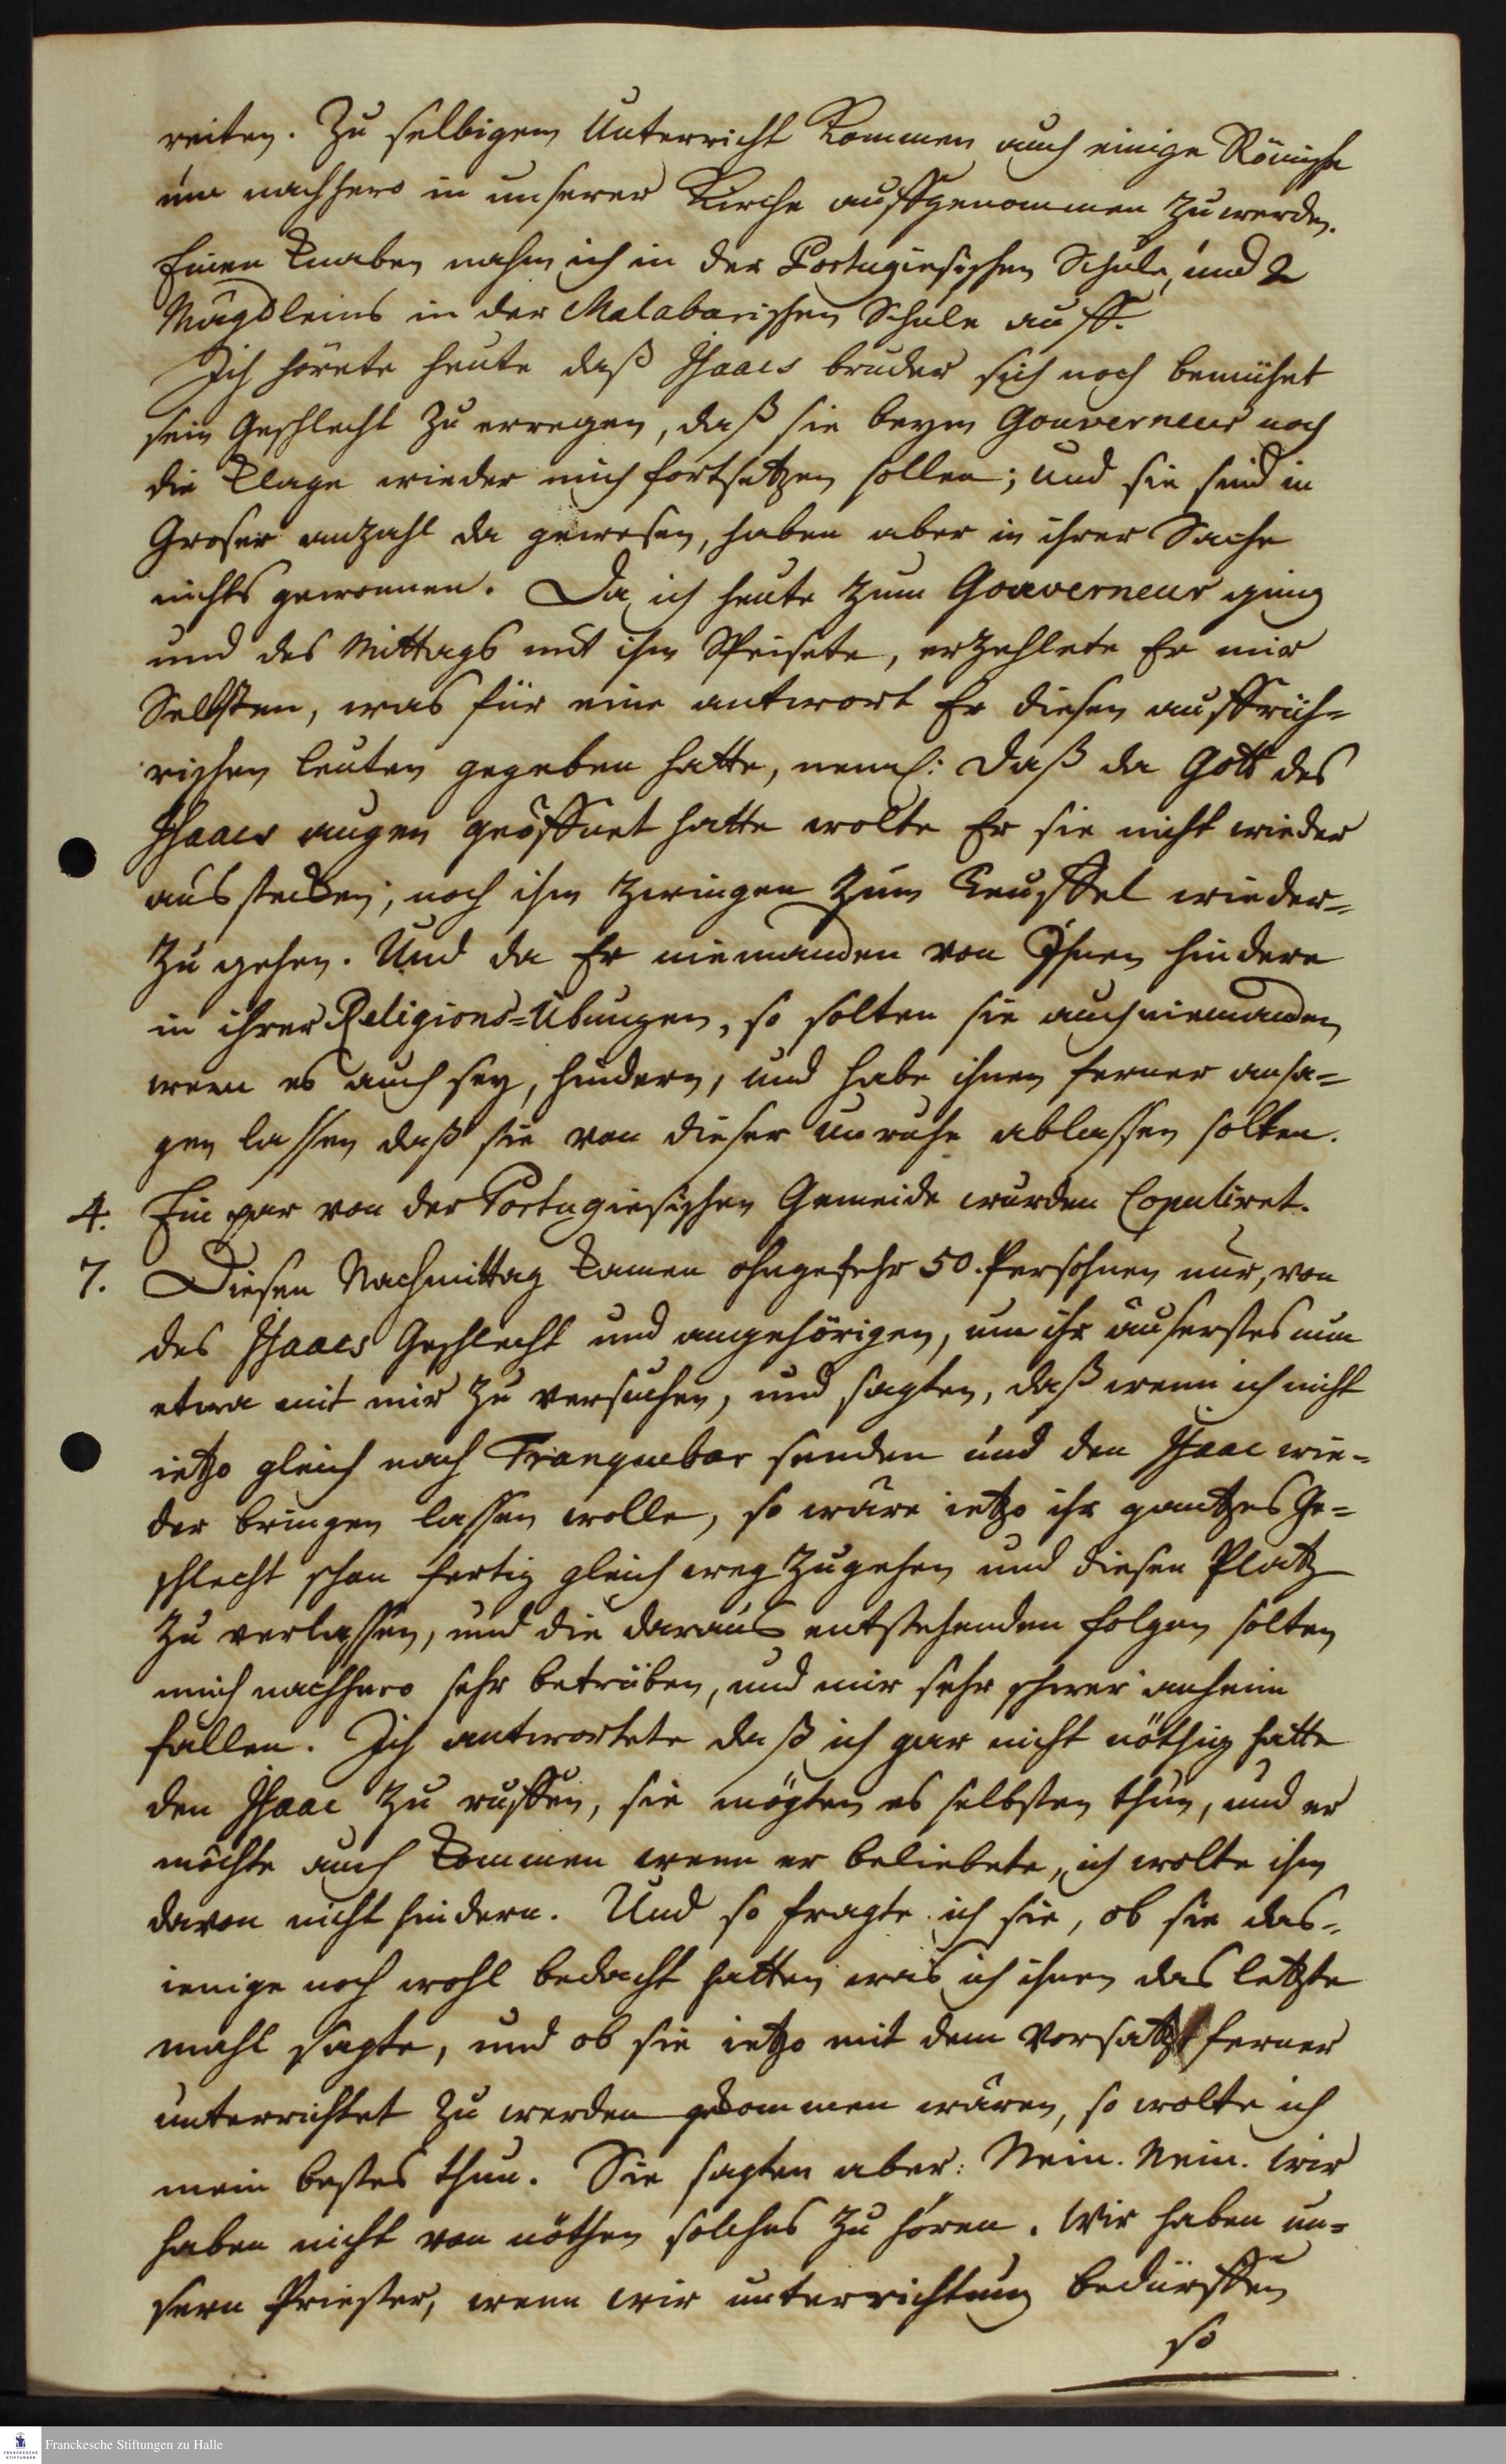 reiten. Zu selbigem Unterricht kommen auch einige Römische
üm nachhero in unserer Kirche auffgenommen zu werden.
Einen Knaben nahm ich in der Portugiesischen Schule, und 2
Mägdleins in der Malabarischen Schule auff.
Ich hörete heute daß Isaacs bruder sich noch bemühet
sein Geschlecht zu erregen, daß sie beym Gouverneur noch
die Klage wieder mich fortsetzen sollen; und sie sind in
Groser anzahl da gewesen, haben aber in ihrer Sache
nichts gewonnen. Da ich heute zum Gouverneur ging
und des Mittags mit ihm Speisete, erzehlete Er mir
Selbsten, was für eine antwort Er diesen auffrüh=
rischen leuten gegeben hatte, neml: daß da Gott des
Isaacs augen geöffnet hatte wolte Er sie nicht wieder
ausstecken; noch ihm zwingen zum Teuffel wieder=
zu gehen. Und da Er niemanden von Ihnen hindere
in ihrer Religions=Übungen, so solten sie auch niemanden
wem es auch sey, hindern, und habe ihnen ferner ansa=
gen lassen daß sie von dieser unruhe ablassen solten.
4. Ein par von der Portugiesischen Gemeide wurden Copuliret.
7. Diesen Nachmittag kamen ohngefehr 50. Persohnen nur, von
des Isaacs Geschlecht und angehörigen, um ihr äuserstes nun
etwa mit mir zu versuchen, und sagten, daß wenn ich nicht
ietzo gleich nach Tranquebar senden und den Isaac wie=
der bringen lassen wolle, so wäre ietzo ihr gantzes Ge=
schlecht schon fertig gleich weg zugehen und diesen Platz
zu verlassen, und die daraus entstehenden folgen solten
mich nachhero sehr betrüben, und mir sehr schwer anheim
fallen. Ich antwortete daß ich gar nicht nöthig hätte
den Isaac zu ruffen, sie mögten es selbsten thun, und er
möchte auch kommen wenn er beliebete, ich wolte ihm
davon nicht hindern. Und so fragte ich sie, ob sie das=
ienige noch wohl bedacht hatten was ich ihnen das letzte
mahl sagte, und ob sie ietzo mit dem Vorsatz ferner
unterrichtet zu werden gekommen wären, so wolte ich
mein bestes thun. Sie sagten aber: Nein. Nein. Wir
haben nicht von nöthen solches zu hören. Wir haben un=
sern Priester, wenn wir unterrichtung bedürffen
so
Franckesche Stiftungen zu Halle